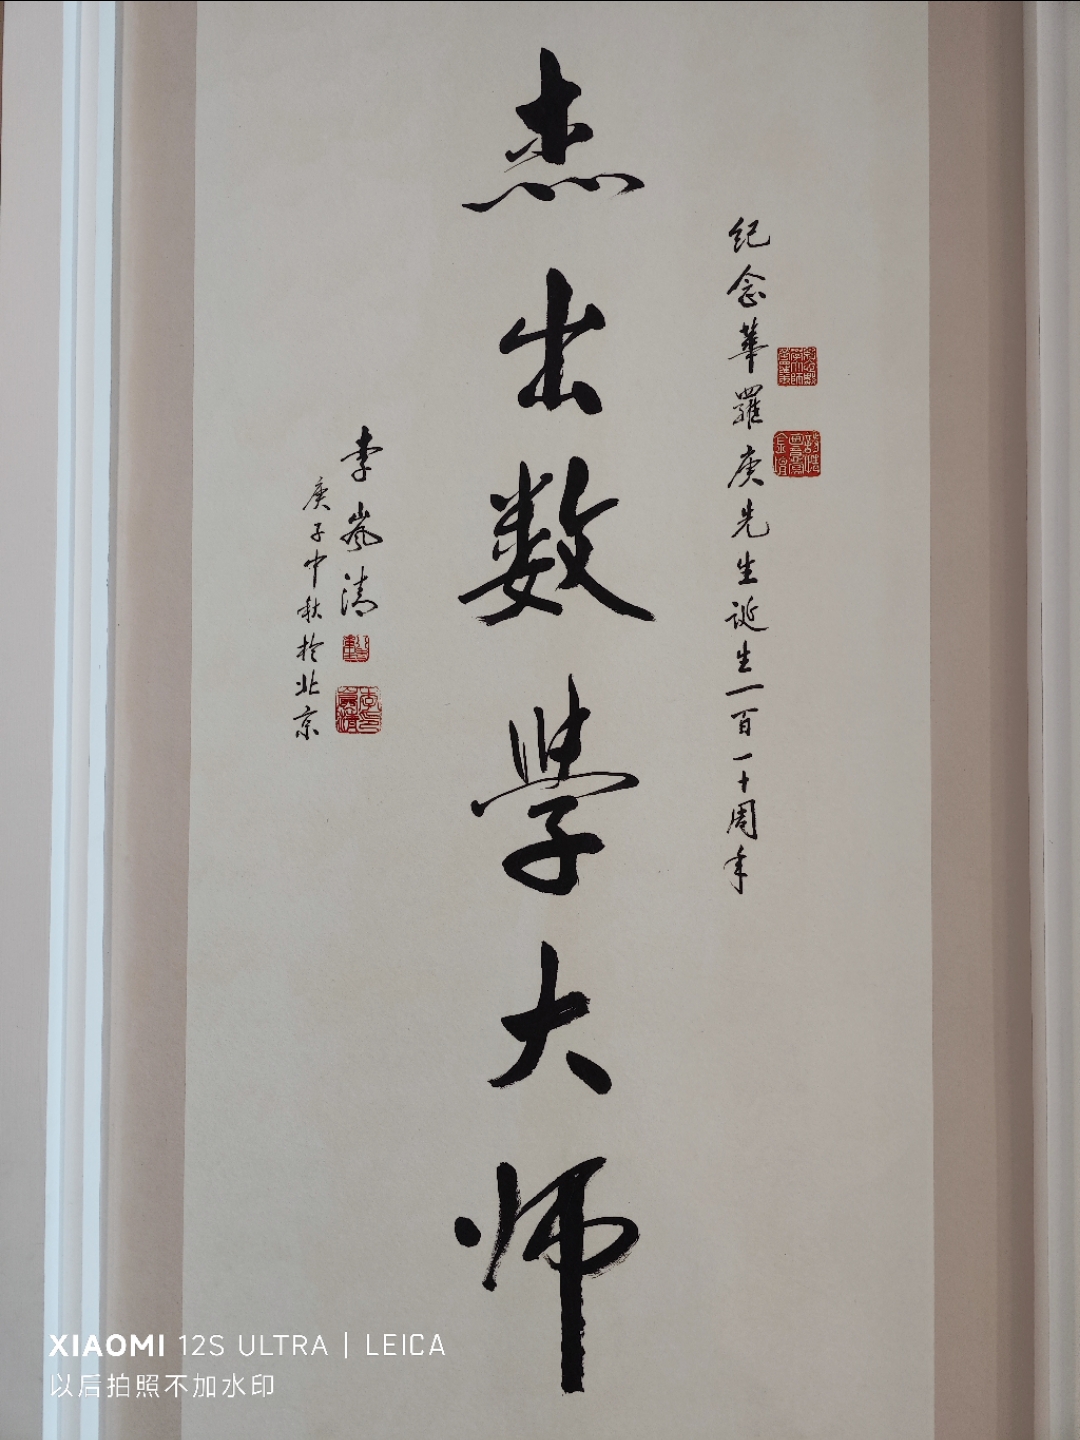 纪念華羅庚先生诞生一百一十周年
杰出数學大师
李岚清
庚子中秋於北京
XIAOMI 12S ULTRA | LEICA
以后拍照不加水印